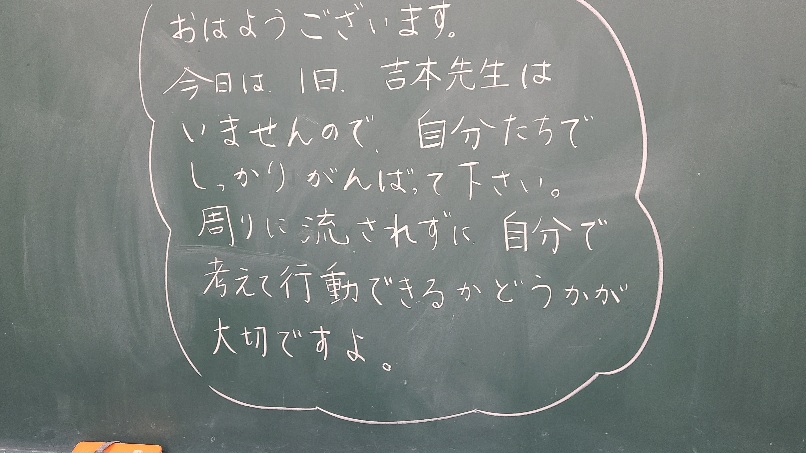 おはようございます。
今日は、1日、吉本先生は
いませんので、自分たちで
しっかりがんばって下さい。
周りに流されずに自分で
考えて行動できるかどうかが
大切ですよ。